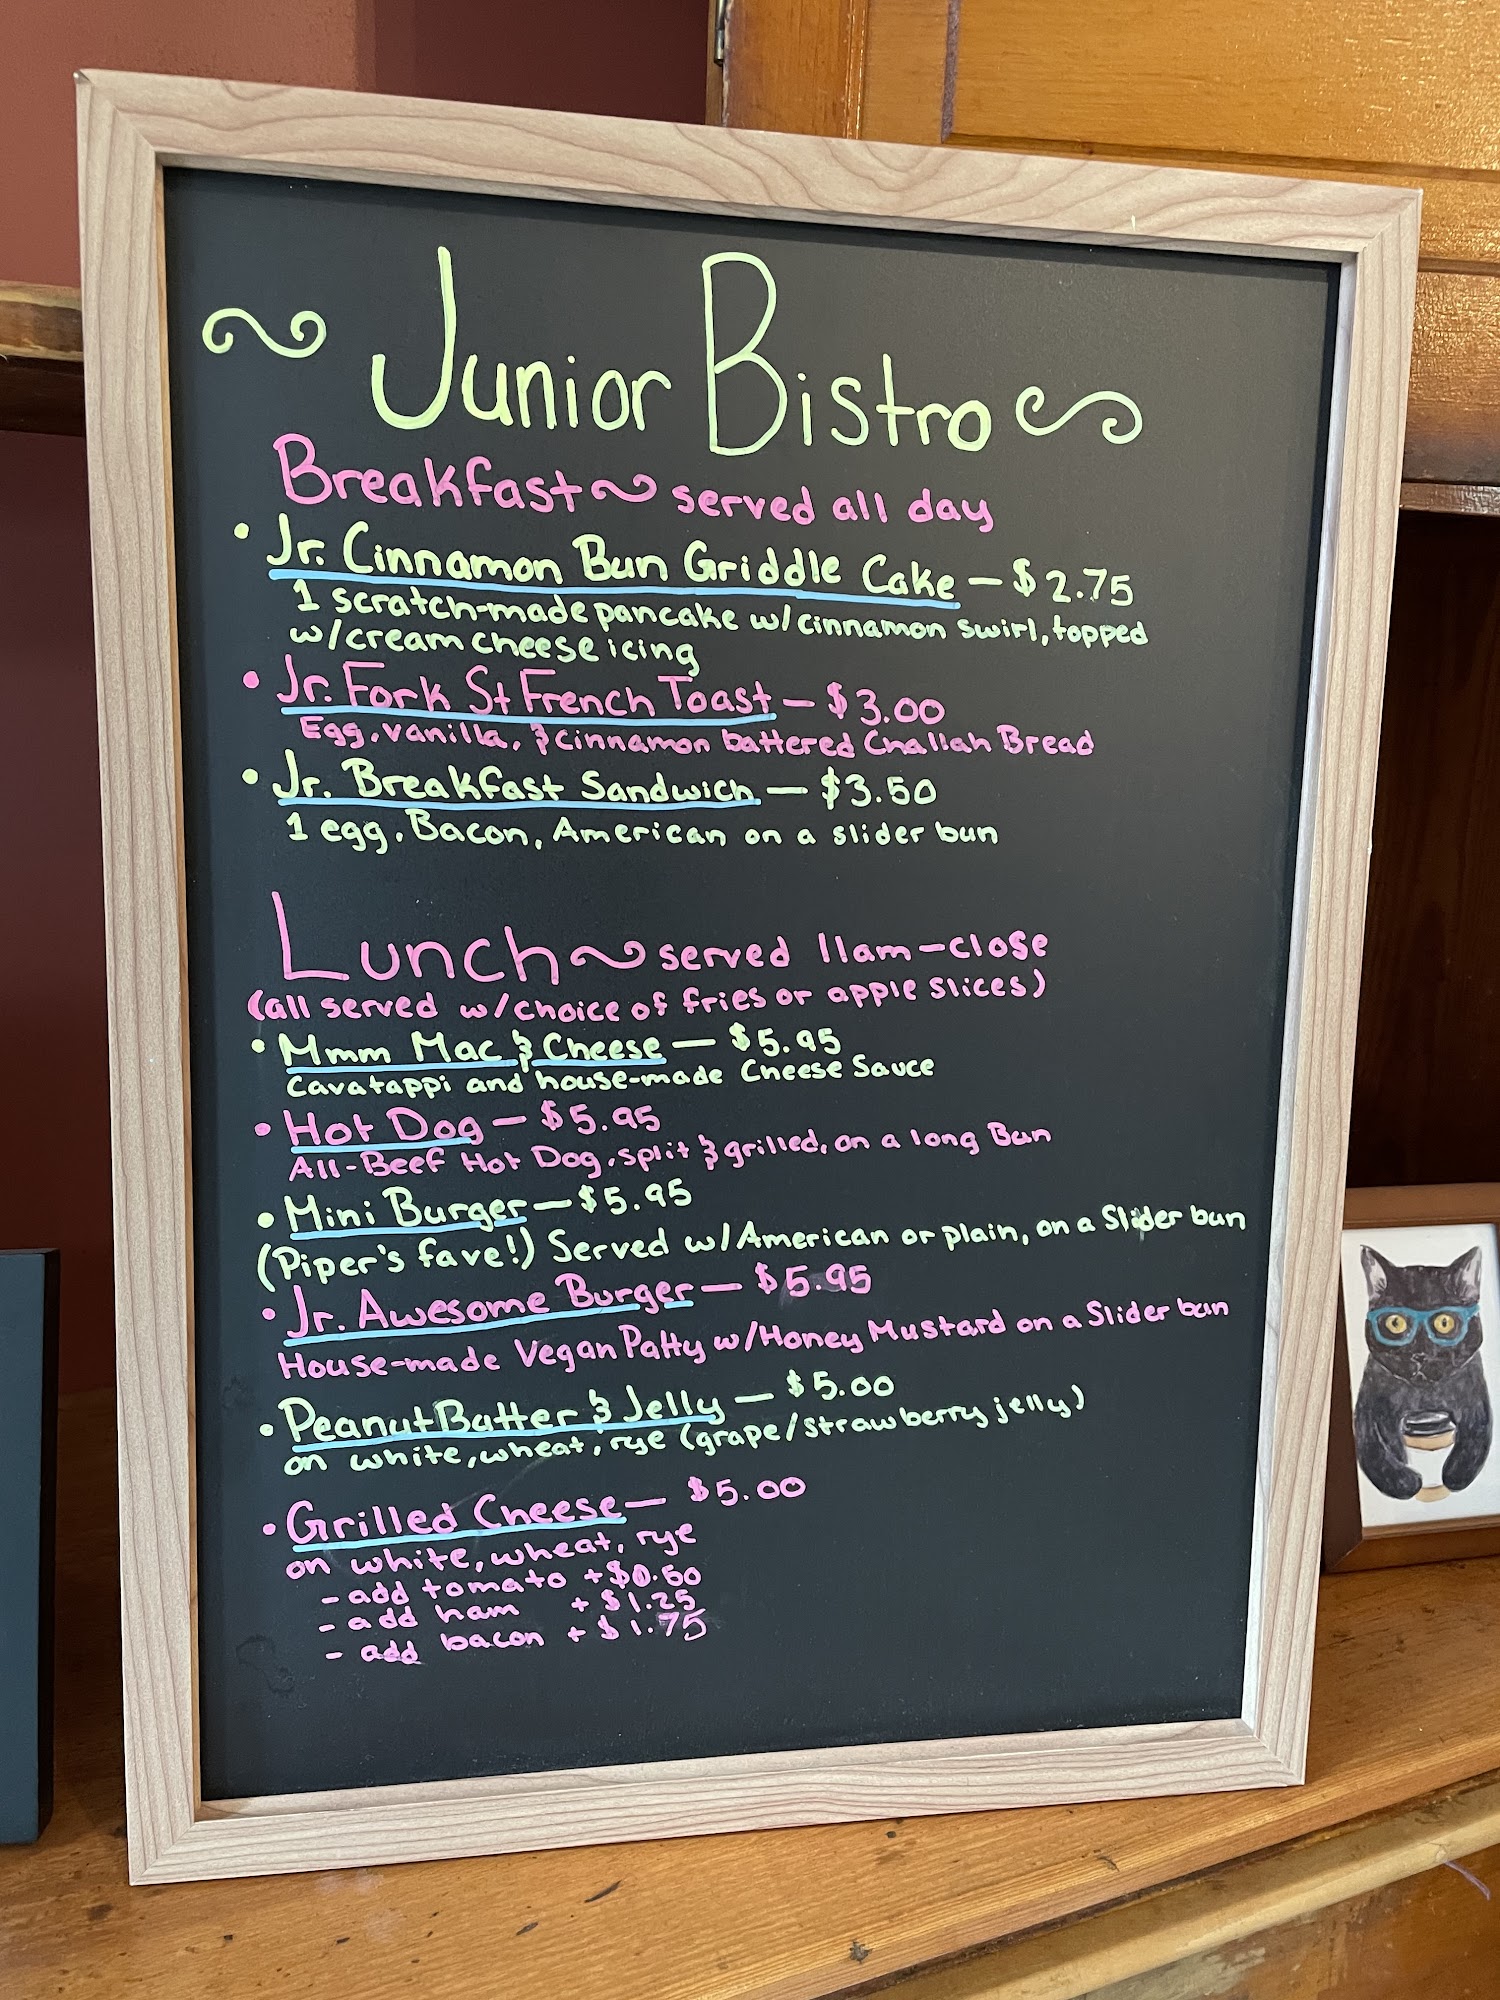 Junior Bistro
Breakfast ~ served all day
• Jr. Cinnamon Bun Griddle Cake — $2.75
1 scratch-made pancake w/cinnamon swirl, topped
w/cream cheese icing
• Jr. Fork St French Toast — $3.00
Egg, vanilla, & cinnamon battered Challah Bread
• Jr. Breakfast Sandwich — $3.50
1 egg, Bacon, American on a slider bun
Lunch ~ served 11am-close
(all served w/choice of fries or apple slices)
• Mmm Mac & Cheese — $5.95
Cavatappi and house-made Cheese Sauce
• Hot Dog — $5.95
All-Beef Hot Dog, split & grilled, on a long Bun
• Mini Burger — $5.95
(Piper's fave!) Served w/American or plain, on a Slider bun
• Jr. Awesome Burger — $5.95
House-made Vegan Patty w/Honey Mustard on a Slider bun
• Peanut Butter & Jelly — $5.00
on white, wheat, rye (grape/strawberry jelly)
• Grilled Cheese — $5.00
on white, wheat, rye
- add tomato +$0.50
- add ham +$1.25
- add bacon +$1.75